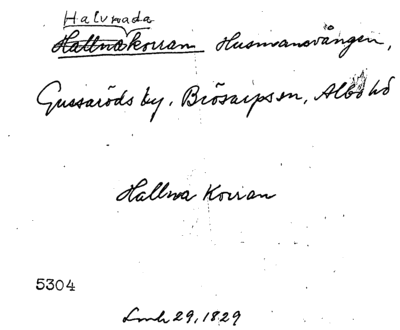 Halvwada
Hallwakorran Husmansvången,
Gussaröds by, Brösarps sn, Albo hd
Hallwa Korran
5304
Lmh 29, 1829